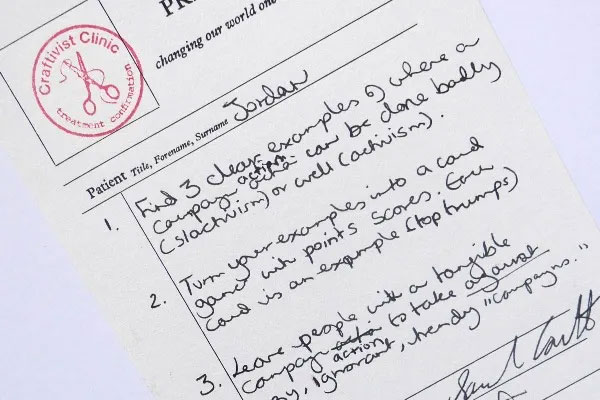 Craftivist Clinic
treatment confirmation
PR
changing our world one
Patient Title, Forename, Surname Jordan
1. Find 3 clear examples of where a
campaign action can be done badly
(slactivism) or well (activism).
2. Turn your examples into a card
game with points scores. Each
card is an example (top trumps)
3. Leave people with a tangible
campaign action to take against
, ignorant, trendy "campaigns."